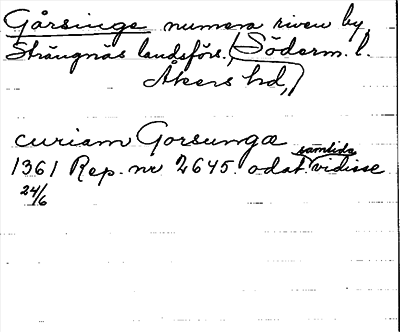 Gårsinge numera riven by
Strängnäs landsförs., Söderm. l.
Åkers hd,
curiam Gorsungæ
1361 Rep. nr 2645. odat. samtida vidisse
24/6